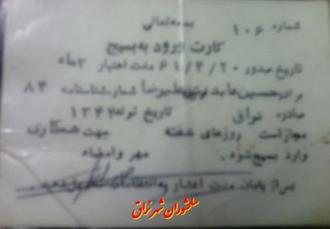 بسمه تعالی
شماره ۱۰۶
کارت ورود به بسیج
تاریخ صدور ۶۱/۴/۲۰ مدت اعتبار ۲ ماه
برادر حسین عابدینی علیرضا شماره شناسنامه ۸۴
صادره نراق تاریخ تولد ۱۳۴۴
مجاز است روزهای هفته جهت همکاری
وارد بسیج شود. مهر و امضاء
پس از پایان مدت اعتبار به انتظامات
سلحشوران شهر نراق